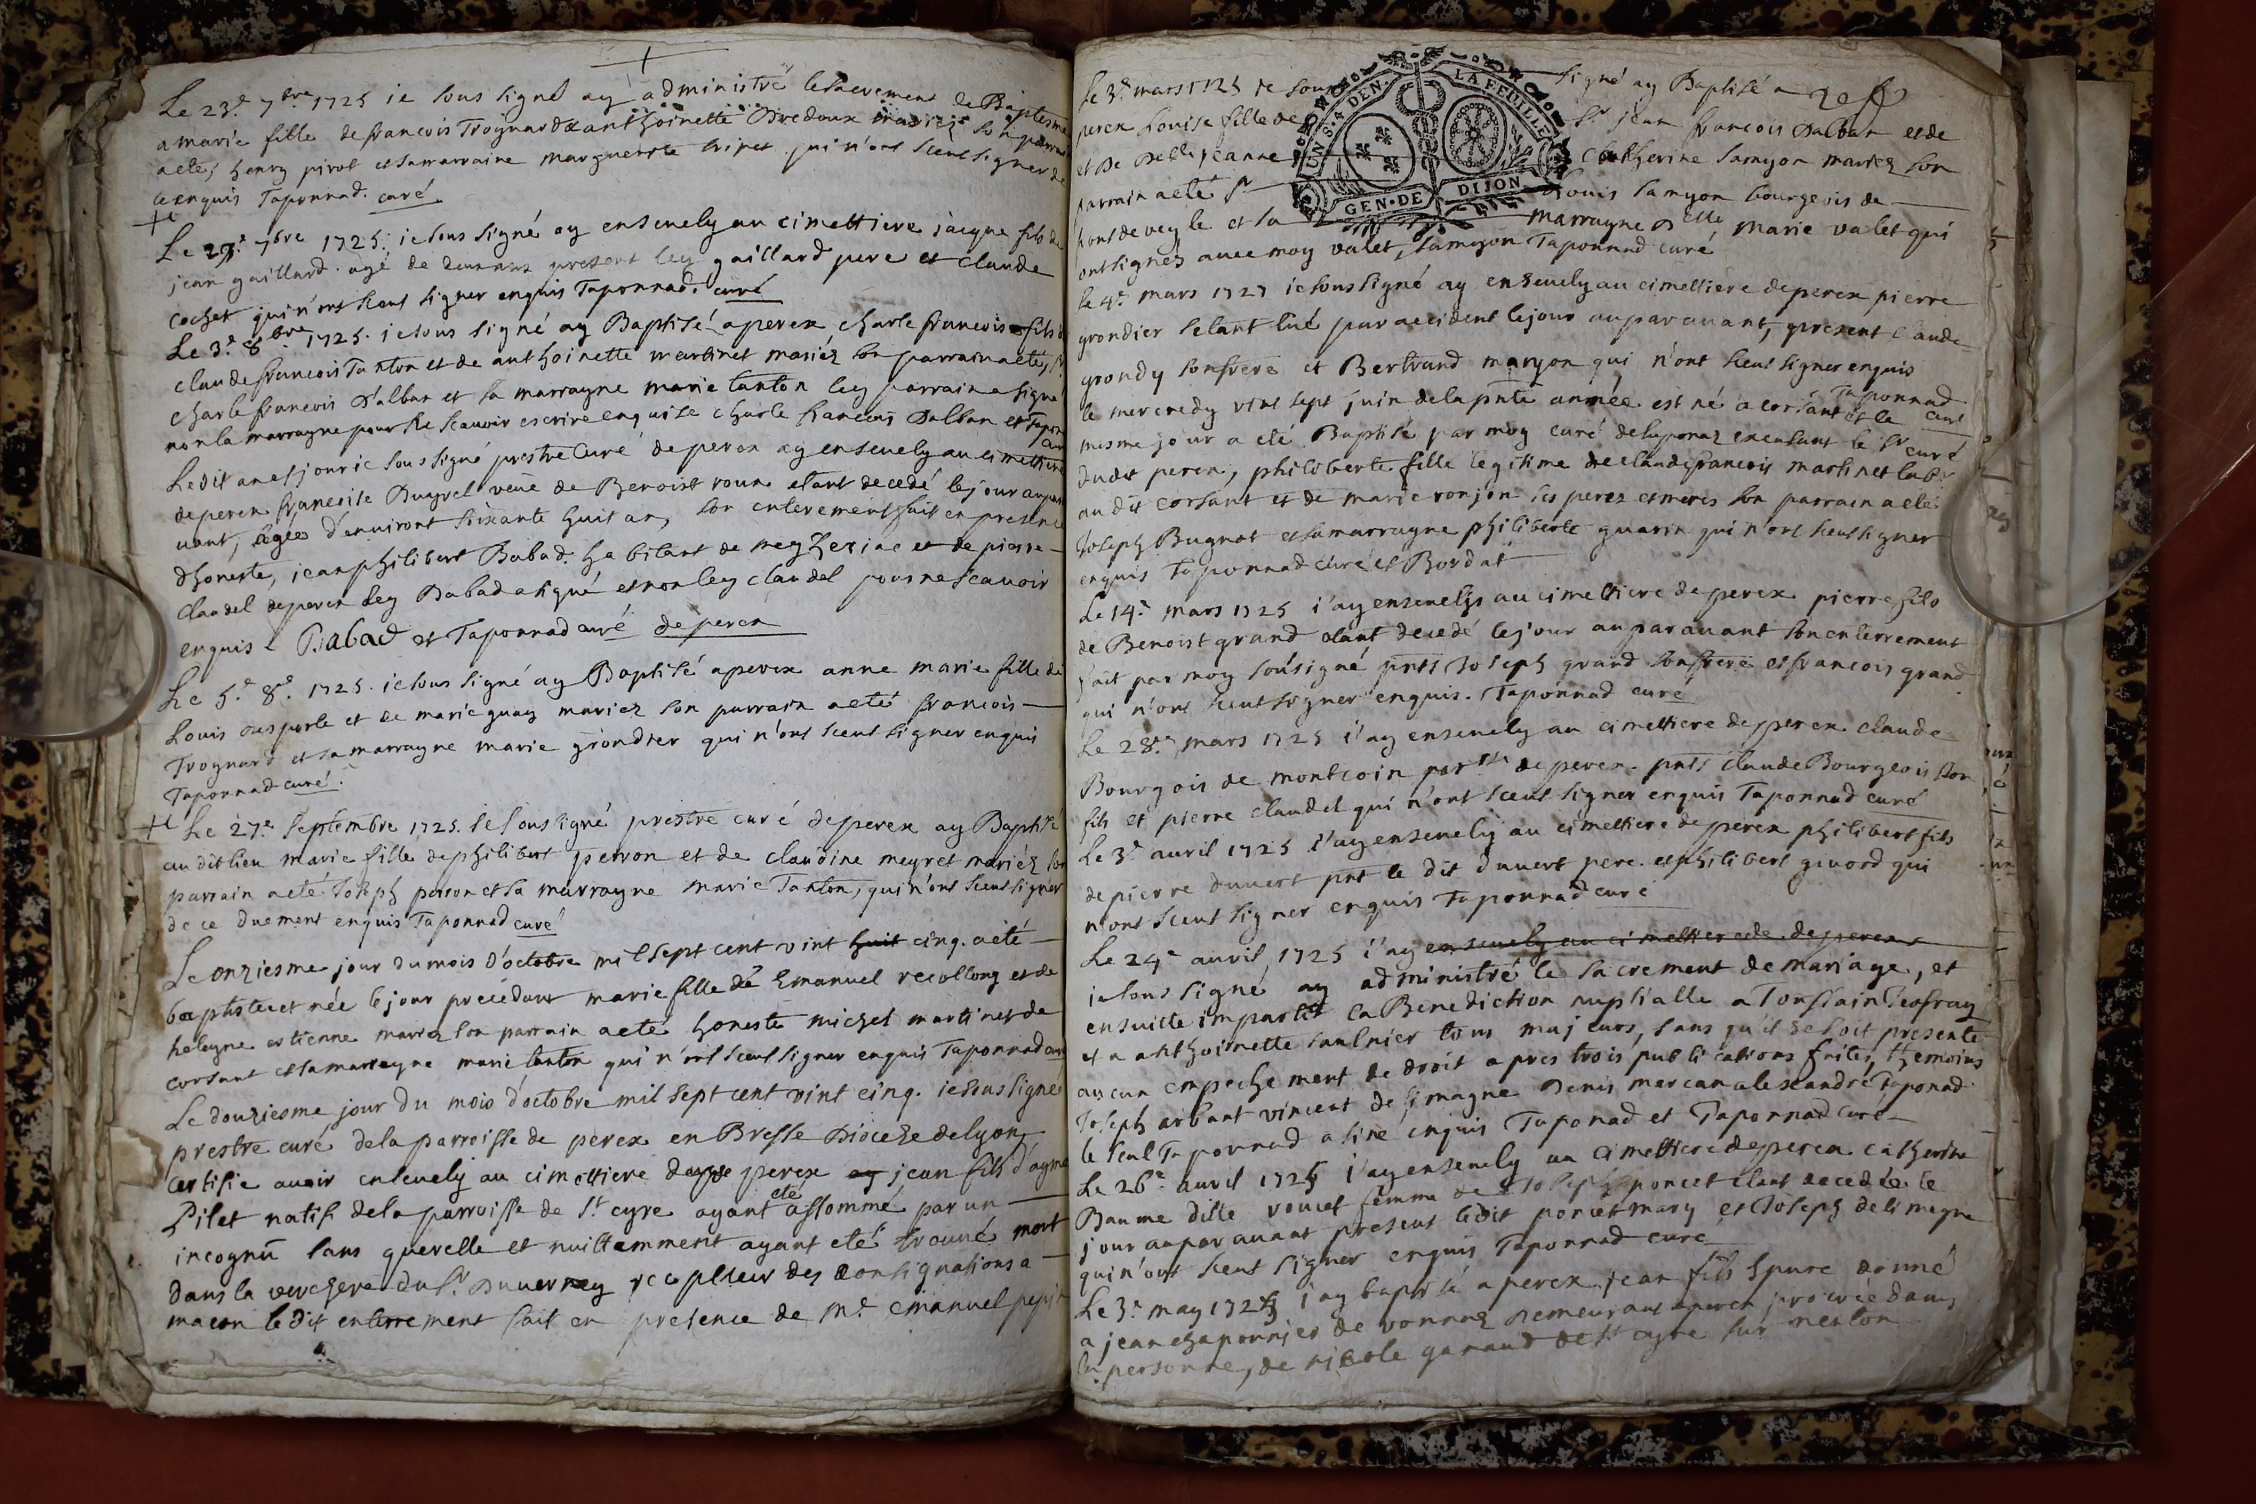 Le 23.e 7bre 1725 ie sous signé ay administré le sacrement de Baptesme
a marie fille de francois Trognard et anthoinette Dredoux mariez son parrain
a eté henry pirot et sa marraine marguerite tripet qui n'ont sceut signer de
ce enquis Taponnad. curé
Le 29.e 7bre 1725. ie sous signé ay ensevely au cimettiere jacque fils de
jean gaillard. agé de deux ans present ley gaillard pere et claude
cochet qui n'ont sceut signer enquis Taponnad. curé
Le 3.e 8bre 1725. ie sous signé ay Baptisé a perex charle francois fils de
claude francois Tanton et de anthoinette martinet mariéz son parrain a eté, sr
charle francois D'alban et la marrayne marie tanton ley parrain a signé
non la marrayne pour ne scavoir escrire enquise charle francois Dalban et Taponnad
curé
Ledit an et jour ie sous signé prestre Curé de perex ay ensevely au cimettiere
de perex francoise Duyvel veuve de Benoist roux etant decedé le jour aupara
vant, agée d'environt soixante huit an, son enterement fait en presence
d'honeste, jean philibert Babad. habitant de meyzeriac et de pierre
claudel de perex ley Babad a signé et non ley claudel pour ne scavoir
enquis Babad et Taponnad curé de perex
Le 5.e 8e. 1725. ie sous signé ay Baptisé a perex anne marie fille de
Louis ousperle et de marie guay mariez son parrain a eté francois
Trognard et sa marrayne marie grondier qui n'ont sceut signer enquis
Taponnad curé.
Le 27.e septembre 1725. ie sous signé prestre curé de perex ay Baptisé
au dit lieu marie fille de philibert perron et de claudine meyret mariéz son
parrain a eté Joseph perron et sa marrayne marie Tanton, qui n'ont sceut signer
de ce duement enquis Taponnad curé
Le onziesme jour du mois d'octobre mil sept cent vint huit cinq. a eté
baptistée et née le jour precedant marie fille de Emanuel recollong et de
heleyne estienne mariez son parrain a eté honeste michel martinet de
corsant et sa marrayne marie tanton qui n'ont sceut signer enquis Taponnad curé
Le douziesme jour du mois d'octobre mil sept cent vint cinq. ie sous signé
prestre curé de la parroisse de perex en Bresse Dioceze de lyon
certifie avoir ensevely au cimettiere de perex jean fils d'aymé
Pilet natif de la parroisse de st cyre ayant eté assommé par un
incognu sans querelle et nuittamment ayant eté trouvé mort
dans la verchere du sr. Duverney recepteur des consignations a
macon le dit enterrement fait en presence de mr. emanuel pepin
Le 3.e mars 1725 ie sous signé ay Baptisé a
perex Louise fille de sr. jean francois Dalban et de
et de delle jeanne Catherine samyon mariez son
parrain a eté sr Louis samyon bourgeois de
pont de veyle et sa marrayne delle marie valet qui
ont signéz avec moy valet, samyon Taponnad curé
UN S. 4 DEN. LA FEUILLE
GEN. DE DIJON
le 4.e mars 1727 ie sous signé ay ensevely au cimettiere de perex pierre
grondier s'etant tué par accident le jour auparavant, present claude
grondy son frere et Bertrand manyon qui n'ont sceut signer enquis
Taponnad curé
le mercredy vint sept juin de la pnte année est né a corsant et le
mesme jour a eté Baptisé par moy curé de laponaz en absant le sr curé
dudit perex, philiberte fille legitime de claude francois martinet labr
au dit corsant et de marie ronjon ses perez et meres son parrain a eté
Joseph Bugnot et sa marrayne philiberte guarin qui n'ont sceut signer
enquis Taponnad curé et Bordat
Le 14.e mars 1725 i'ay ensevely au cimettiere de perex pierre fils
de Benoist grand etant decedé le jour auparavant son enterrement
fait par moy sousigné pnts Joseph grand son frere et francois grand
qui n'ont sceut signer enquis. Taponnad curé
Le 28.e mars 1725 i'ay ensevely au cimettiere de perex claude
Bourgois de montcoin par.sse de perex. pnts claude Bourgeois son
fils et pierre claudel qui n'ont sceut signer enquis Taponnad curé
Le 3.e avril 1725 i'ay ensevely au cimettiere de perex philibert fils
de pierre duvert pnt le dit duvert pere. et philibert givord qui
n'ont sceut signer enquis Taponnad curé
Le 24.e avril 1725 i'ay ensevely au cimettiere de de perex
ie sous signé ay administré le sacrement de mariage, et
ensuitte impartit la Benediction nuptialle a Toussain Geofray
et a anthoinette saulnier tous majeurs, sans qu'il se soit presenté
aucun empechement de droit apres trois publications faites, themoins
Joseph arbant vincent de simagne Denis mercan alexandre Taponad
le seul Taponnad a siné enquis Taponad et Taponnad curé
Le 26.e avril 1725 i'ay ensevely au cimettiere de perex catherine
Baume ditte voucet femme de Joseph poncet etant decedée le
jour auparavant present ledit poncet mary et Joseph de simagne
qui n'ont sceut signer enquis Taponnad curé
Le 3.e may 1725 i'ay baptisé a perex jean fils spure donné
a jean chaponnier de vonnaz demeurant a perex procrée dans
personne, de nicole garaud de st cyre sur menton